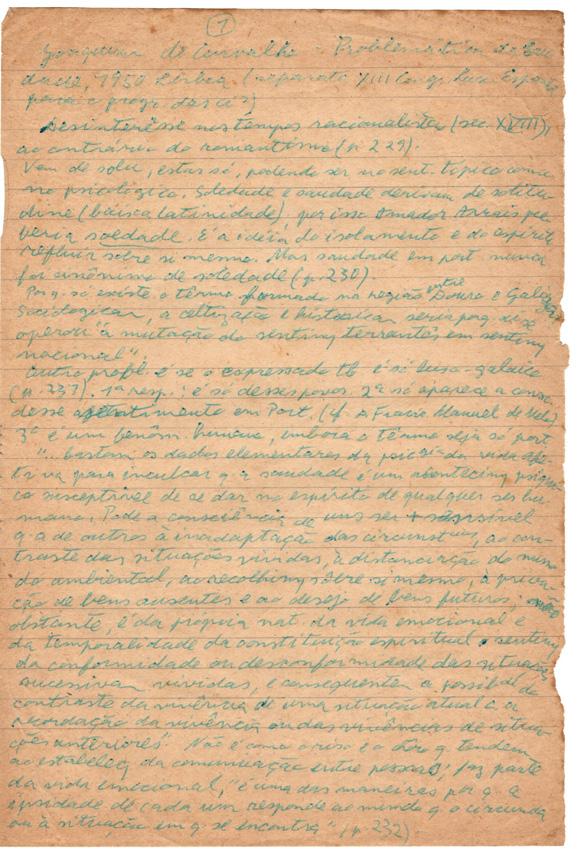 1
Joaquim de Carvalho - Problemática da Sau
dade, 1950 Lisboa (separata XIII Cong. Luso Espanh
para o progr. das ci.)
Desinterêsse nos tempos racionalistas (sec. XVIII),
ao contrário do romantismo (p. 229).
Vem de solu, estar só, podendo ser no sent. tópico como
no psicológico. Soledade e saudade derivam de solitu-
dine (baixa latinidade), por isso Amador Arrais
soedade. É a idéia do isolamento e do espírito
refluir sobre si mesmo. Mas saudade em port. nunca
foi sinônimo de soledade (p. 230).
Porq. só existe o têrmo formado na região entre Douro e Galiza
a e histórica seria porq. aí se
operou "a mutação do sentim/ terrantês em sentim/
nacional".
Outro probl. é se o expressado tb é só luso-galaico
(p. 231). 1ª resp.: é só desses povos. 2ª só aparece a consc.
desse sentimento em Port. (cf. D. Francisco Manuel de Melo)
3ª é um fenôm. humano, embora o têrmo seja só port.
"... bastam os dados elementares da psicgia da vida afe-
tiva para inculcar q. a saudade é um acontecim/ psíqui-
co susceptível de se dar no espírito de qualquer ser hu-
mano. Pode a consciência de uns ser + sensível
q. a de outros à inadaptação das circunstcias, ao con-
traste das situações vividas, à distanciação do mun-
do ambiental, ao recolhim/ sôbre si mesmo, à priva-
ção de bens ausentes e ao desejo de bens futuros; não
obstante, é da própria nat. da vida emocional e
da temporalidade da constituição espiritual o sentim/
da conformidade ou desconformidade das situações
sucessivam. vividas, e consequentem. a possibilde do
contraste da vivência de uma situação atual c. a
recordação da vivência ou das vivências de situa-
ções anteriores". Não é como o riso e o chôro q. tendem
ao estabelec/ da comunicação entre pessoas; faz parte
da vida emocional, "é uma das maneiras por q. a
ipseidade de cada um responde ao mundo q. o circunda
ou à situação em q. se encontra" (p. 232)